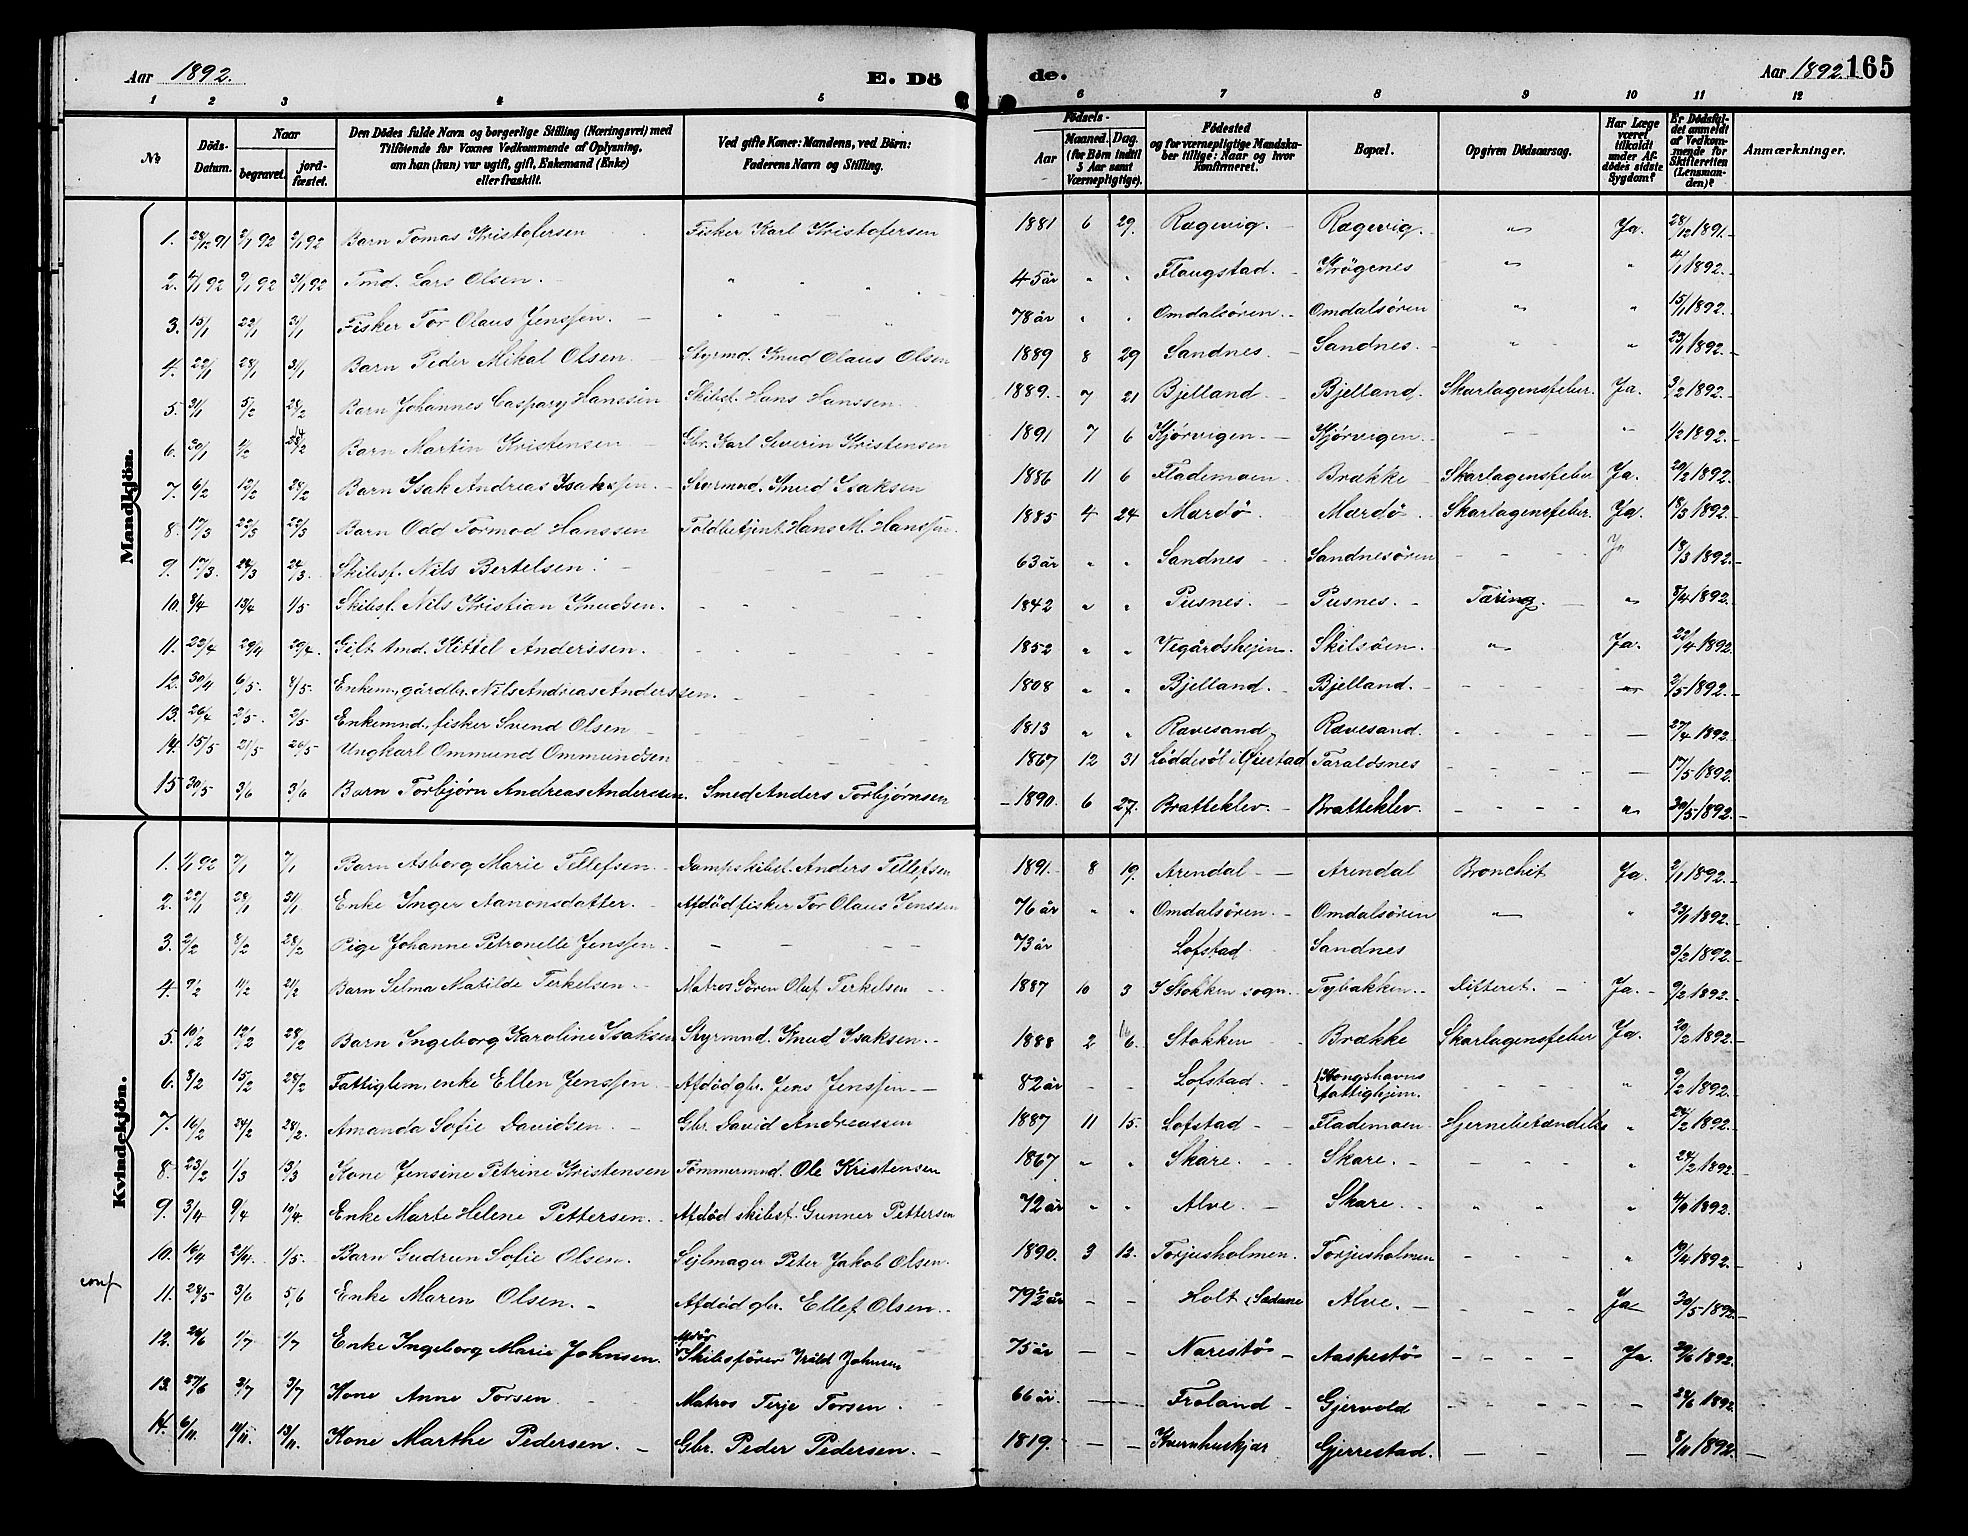 Aar 1892. E. Dö
de. Aar 1892 165
1 2 3 4 5
6 7 8 9 10 11 12
No
Döds-Datum.
Naar
begravet.
jord-fæstet.
Den Dödes fulde Navn og borgerlige Stilling (Næringsvei) med
Tilföiende for Voxnes Vedkommende af Oplysning,
om han (hun) var ugift, gift, Enkemand (Enke)
eller fraskilt.
Ved gifte Koner: Mandens, ved Börn:
Faderens Navn og Stilling.
Födsels-
Aar
Maaned. Dag.
(for Börn indtil
5 Aar samt
Værnepligtige).
Födested
og for værnepligtige Mandska-
ber tillige: Naar og hvor
Konfirmeret.
Bopæl.
Opgiven Dödsaarsag.
Har Læge
været
tilkaldt
under Af-
dödes sidste
Sygdom?
Er Dödsfal-
det anmeldt
af Vedkom-
mende for
Skifteretten
(Lensman-
den)?
Anmærkninger.
Mandkjön.
1. 28/12 91 2/1 92 2/1 92 Barn Tomas Kristofersen Fisker Karl Kristofersen 1881 6 29. Rægevig. Rægevig. " Ja. 28/12 1891.
2. 4/1 92 9/1 92 31/1 92 Tmd. Lars Olsen. " 45 år " " Flaugstad. Krøgenes " " 4/1 1892.
3. 15/1 22/1 31/1 Fisker Tor Olaus Jenssen. " 78 år " " Omdalsören. Omdalsören " " 15/1 1892.
4. 22/1 28/1 31/1 Barn Peder Mikal Olsen. Styrmd. Knud Olaus Olsen 1889 8 29 Sandnes. Sandnes. " " 23/1 1892.
5. 31/1 5/2 28/2 Barn Johannes Caspary Hanssen Skibsf. Hans Hanssen. 1889. 7 21 Bjelland Bjelland. Skarlagensfeber. Ja. 3/2 1892.
6. 30/1 1/2 Barn Martin Kristensen Gbr. Karl Severin Kristensen 1891 7 6 Kjørvigen. Kjørvigen. - - " 1/2 1892.
7. 6/2 12/2 28/2 Barn Isak Andreas Isakssen. Styrmnd. Knud Isaksen 1886 11 6 Flademoen. Brække Skarlagensfeber Ja. 20/2 1892.
8. 17/3 22/3 22/3 Barn Odd Tormod Hanssen Toldbetjent Hans M. Hanssen. 1885 4 24 Mærdö Mærdö Skarlagensfeber. Ja. 18/3 1892.
9. 17/3. 24/3 24/3. Skibsf. Nils Bertelsen. 63 år " " Sandnes Sandnesören - - Ja 18/3 1892.
10. 8/4 13/4 1/5 Skibsf. Nils Kristian Knudsen. 1842 " " Pusnes. Pusnes. Tæring. " 8/4 1892.
11. 22/4 29/4 29/4. Gift tmd. Kittel Anderssen. 1852 " " Vegårdshejen. Skilsöen. " Ja. 22/4 1892.
12. 30/4 6/5. 8/5. Enkem., gårdbr. Nils Andreas Anderssen. 1808 " " Bjelland. Bjelland. 2/5 1892.
13. 26/4 2/5. 2/5 Enkemnd., fisker Svend Olsen 1813 " " Ravesand Rævesand. 27/4 1892.
14. 15/5 21/5 26/5 Ungkarl Ommund Ommundsen 1867 12 31 Løddesöl i Øiestad Taraldsnes 17/5 1892.
15 30/5 3/6 3/6 Barn Torbjörn Andreas Anderssen. Smed Anders Torbjörnsen 1890. 6 27. Bratteklev. Bratteklev. " 30/5 1892.
Kvindekjön.
1. 1/1 92 7/1 7/1 Barn Asborg Marie Tellefsen. Dampskibsf. Anders Tellefsen 1891. 8 19. Arendal Arendal Bronchit Ja. 2/1 1892.
2. 22/1 28/1 31/1 Enke Inger Aanonsdatter. Afdöd fisker Tor Olaus Jenssen 76 år " " Omdalsören. Omdalsören " " 23/1 1892.
3. 2/2 8/2 28/2 Pige Johanne Petronelle Jenssen. 73 år Lofstad Sandnes 3/2 1892.
4. 9/2 11/2 21/2 Barn Selma Matilde Terkelsen. Matros Sören Oluf Terkelsen 1887 10 3 I Stokken sogn. Tybakken. Difteret. Ja. 9/2 1892.
5. 10/2 12/2 28/2 Barn Ingeborg Karoline Isaksen Styrmnd. Knud Isaksen. 1888 2 Stokken Brække Skarlagensfeber Ja. 20/2 1892.
6. 8/2 15/2 28/2 Fattiglem, enke Ellen Jenssen. Afdöd gbr. Jens Jenssen. 82 år Lofstad. Kongshavns fattighjem. " 9/2 1892.
7. 16/2 24/2 28/2. Amanda Sofie Davidsen Gbr. David Andreassen 1887 11 15. Lofstad Flademoen Hjernebetændelse " 24/2 1892.
8. 23/2 1/3 13/3 Kone Jensine Petrine Kristensen Tömmermnd. Ole Kristensen 1867 " " Skare. Skare. " 24/2 1892.
9. 3/4 9/4 10/4. Enke Marte Helene Pettersen. Afdöd skibsf. Gunner Pettersen 72 år " " Alve. Skare. " 4/4 1892.
10. 16/4 21/4. 1/5. Barn Gudrun Sofie Olsen. Sejlmager Peter Jakob Olsen. 1890. 3 12. Torjusholmen. Torjusholmen " 19/4 1892.
conf
11. 28/5 3/6 5/6 Enke Maren Olsen. Afdöd gbr. Ellef Olsen. 79 år Holt Alve. Ja 30/5 1892.
12. 26/6 1/7 1/7 Enke Ingeborg Marie Johnsen. Skibsförer Johnsen 75 år Narestö Aaspestö Ja. 29/6 1892.
13. 27/6 2/7 3/7 Kone Anne Torsen Matros Terje Torsen. 66 år Froland Gjervold 28/6 1892.
14. 6/11. 11/11. 13/11. Kone Marthe Pedersen. Gbr. Peder Pedersen. 1819. Kvernhuskjær Gjerrestad. 8/11 1892.